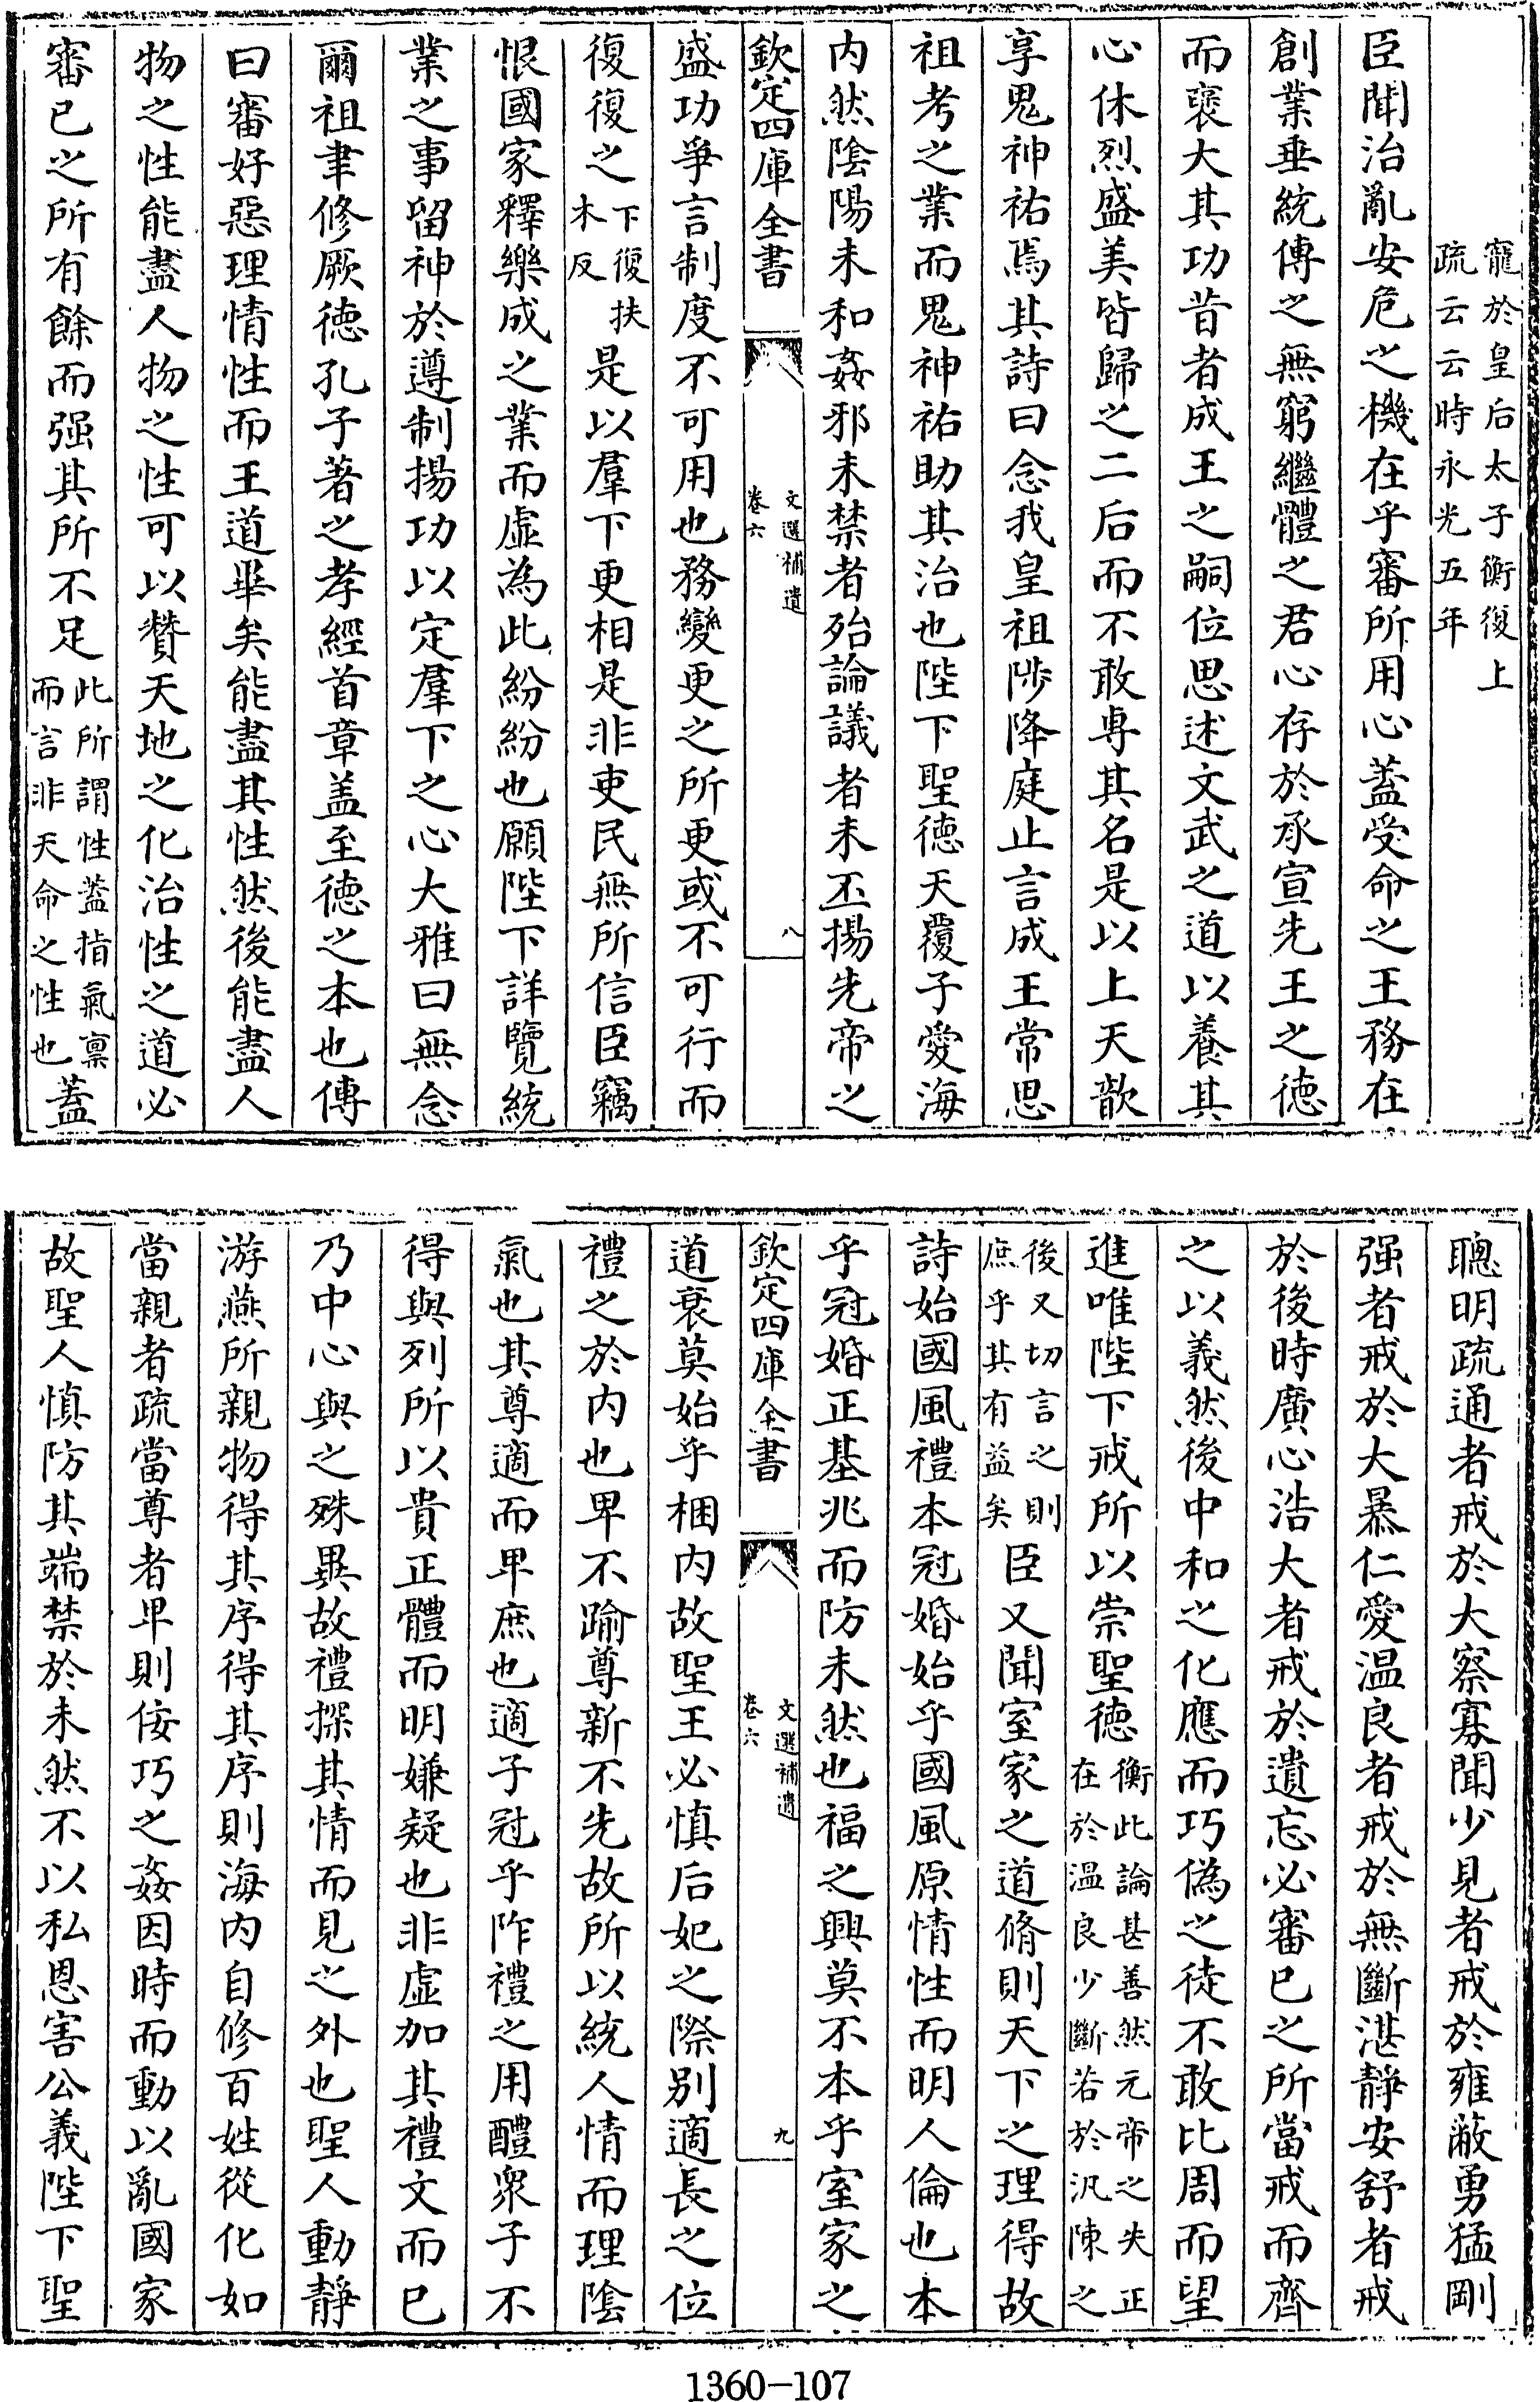 寵於皇后太子衡復上
疏云云時永光五年
臣聞治亂安危之機在乎審所用心蓋受命之王務在
創業垂統傳之無窮繼體之君心存於承宣先王之徳
而襃大其功昔者成王之嗣位思述文武之道以養其
心休烈盛美皆歸之二后而不敢専其名是以上天歆
享鬼神祐焉其詩曰念我皇祖陟降庭止言成王常思
祖考之業而鬼神祐助其治也陛下聖徳天覆子愛海
内然隂陽未和姦邪未禁者殆論議者未丕揚先帝之
欽定四庫全書
文選補遺
卷六
八
盛功爭言制度不可用也務變更之所更或不可行而
復復之下復扶
木反
是以羣下更相是非吏民無所信臣竊
恨國家釋樂成之業而虚為此紛紛也願陛下詳覽統
業之事留神於遵制揚功以定羣下之心大雅曰無念
爾祖聿修厥徳孔子著之孝經首章盖至徳之本也傳
曰審好惡理情性而王道畢矣能盡其性然後能盡人
物之性能盡人物之性可以贊天地之化治性之道必
審已之所有餘而强其所不足此所謂性蓋指氣禀
而言非天命之性也
蓋
聰明疏通者戒於大察寡聞少見者戒於雍蔽勇猛剛
强者戒於大暴仁愛温良者戒於無斷湛靜安舒者戒
於後時廣心浩大者戒於遺忘必審已之所當戒而齊
之以義然後中和之化應而巧偽之徒不敢比周而望
進唯陛下戒所以崇聖徳衡此論甚善然元帝之失正
在於温良少斷若於汎陳之
後又切言之則
庶乎其有益矣
臣又聞室家之道脩則天下之理得故
詩始國風禮本冠婚始乎國風原情性而明人倫也本
乎冠婚正基兆而防未然也福之興莫不本乎室家之
欽定四庫全書
文選補遺
卷六
九
道衰莫始乎梱内故聖王必慎后妃之際别適長之位
禮之於内也卑不踰尊新不先故所以統人情而理隂
氣也其尊適而卑庶也適子冠乎阼禮之用醴衆子不
得與列所以貴正體而明嫌疑也非虚加其禮文而已
乃中心與之殊異故禮探其情而見之外也聖人動靜
游燕所親物得其序得其序則海内自修百姓從化如
當親者疏當尊者卑則佞巧之姦因時而動以亂國家
故聖人慎防其端禁於未然不以私恩害公義陛下聖
1360-107